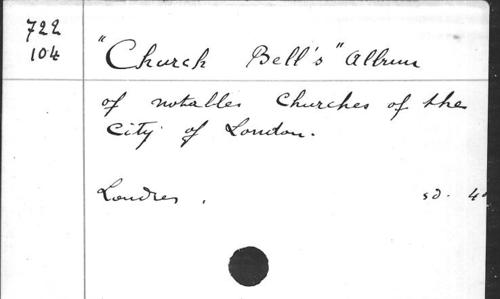 722
104
"Church Bell's" Album
of notables Churches of the
City of London.
Londres, sd. 4°